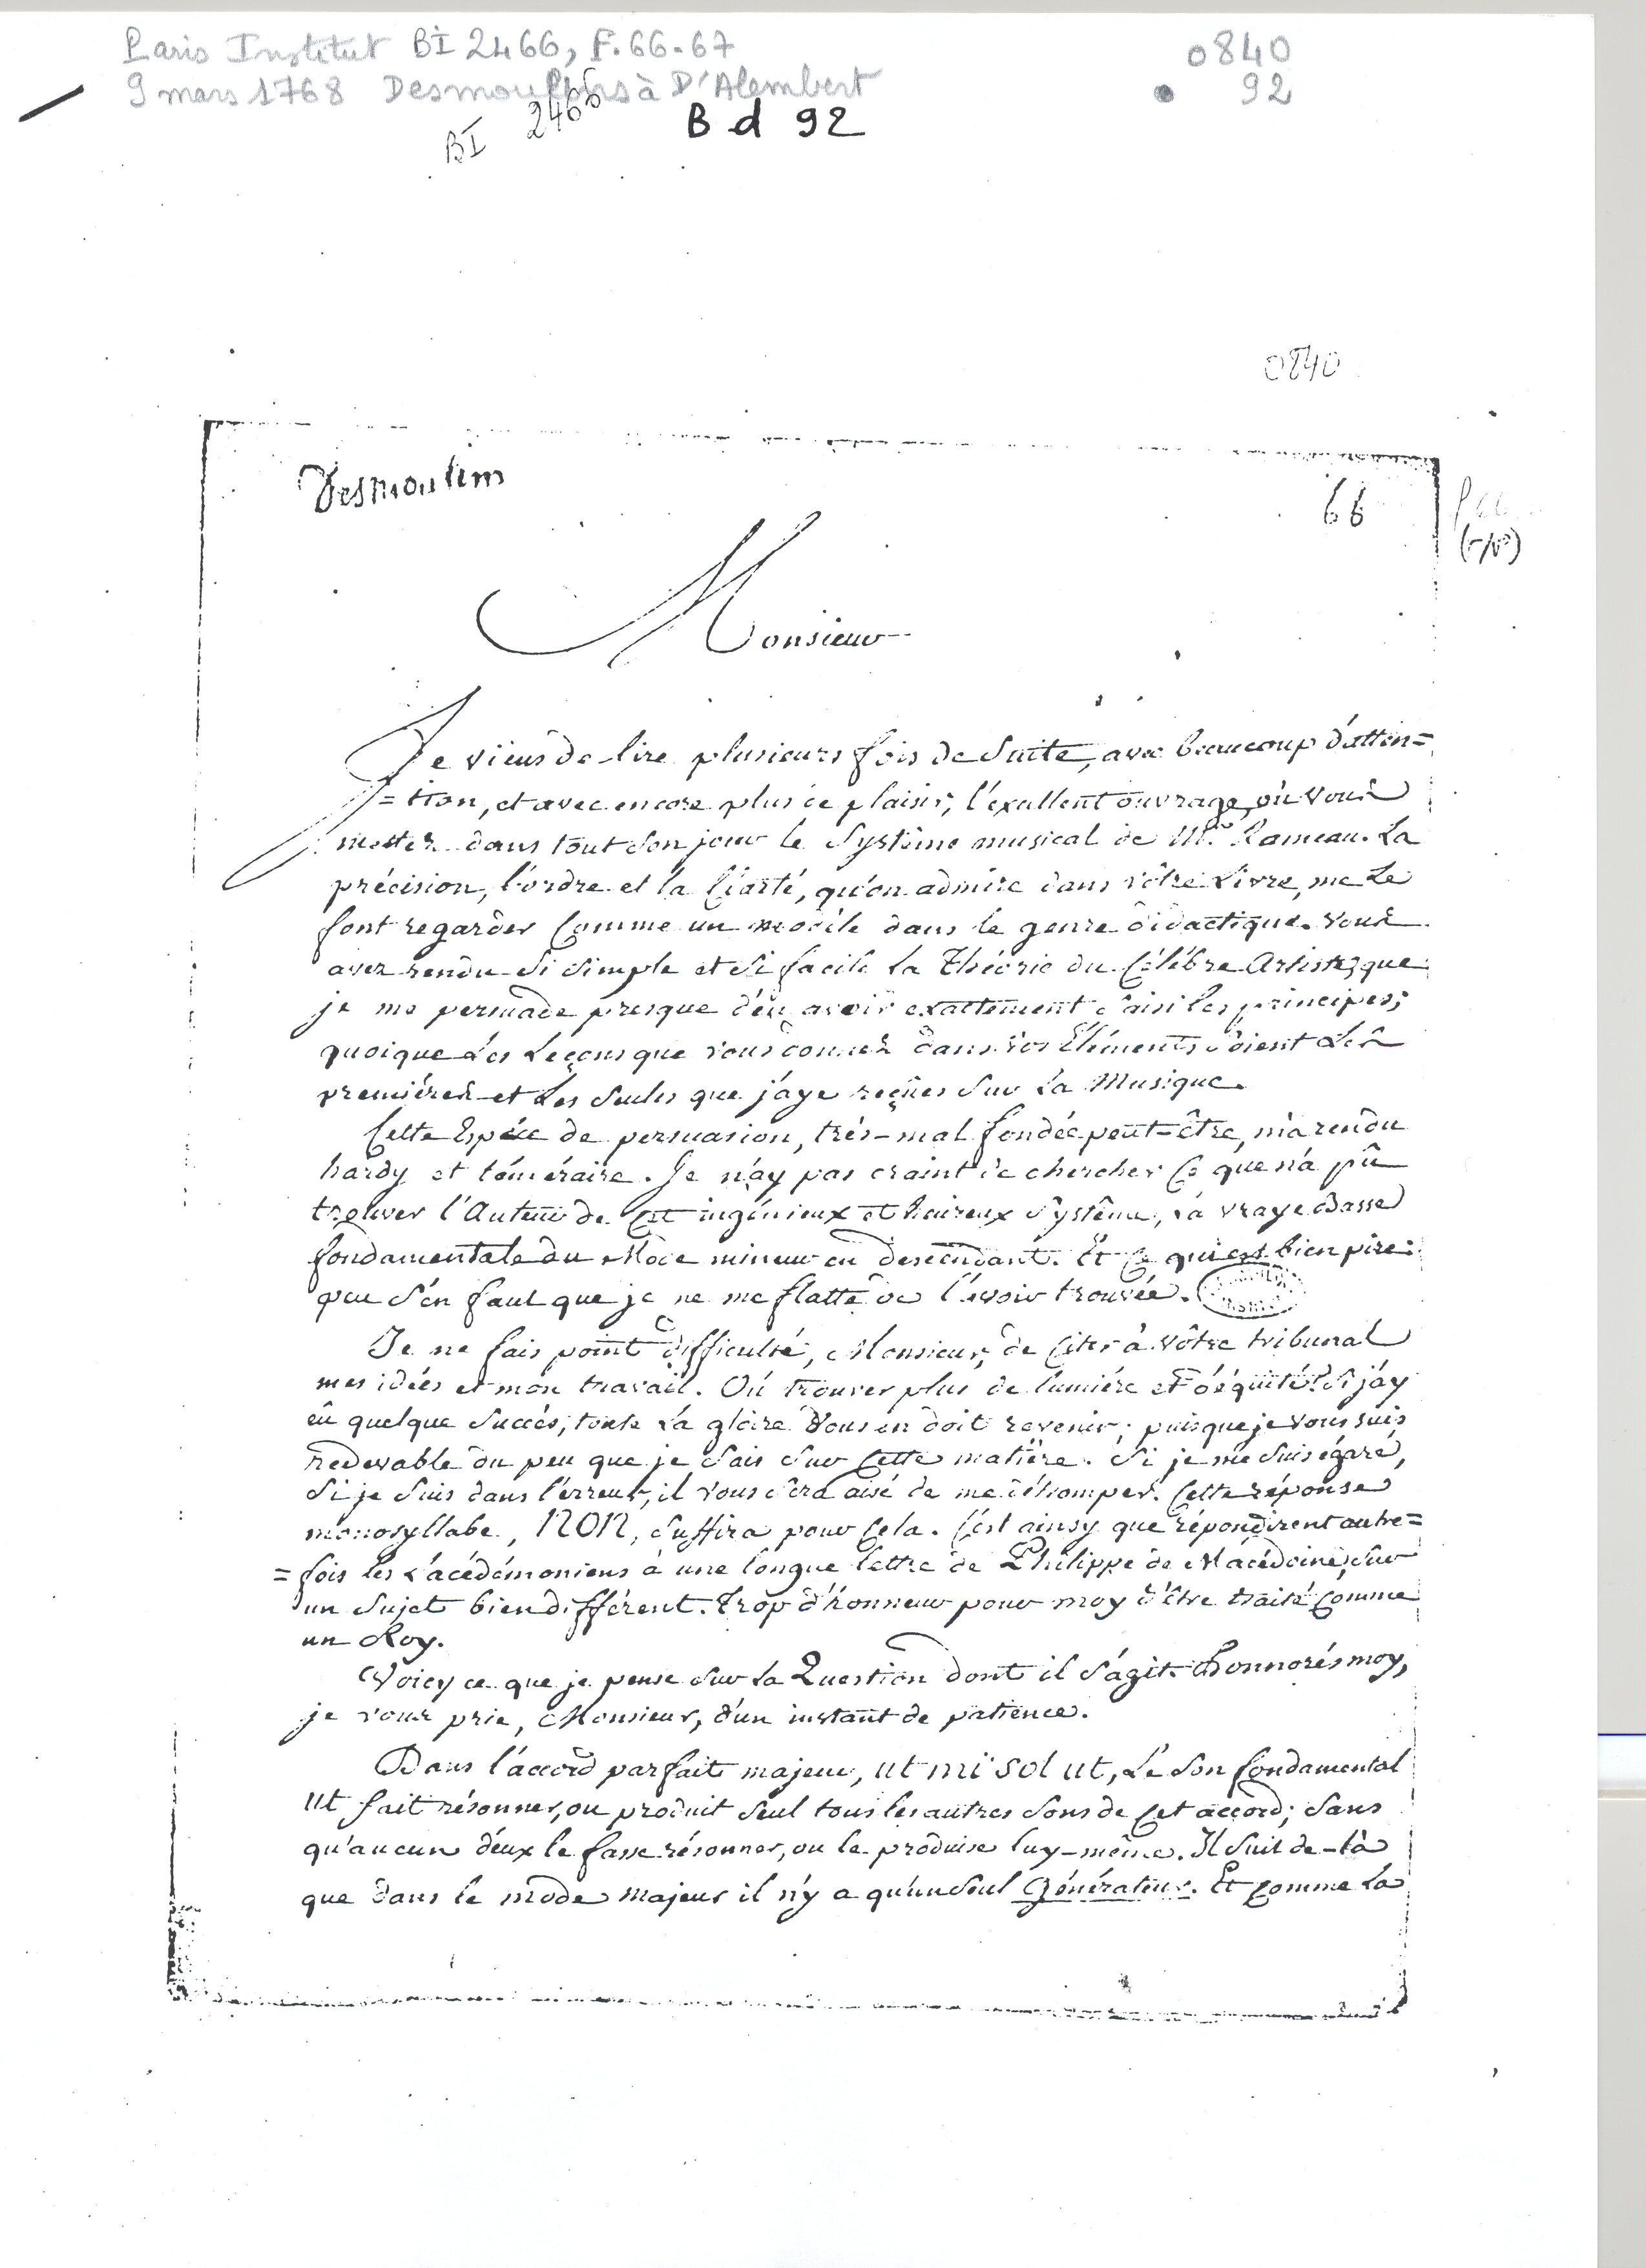 Paris Institut BI 2466, F. 66-67
0840
9 mars 1768 Desmoulins à D'Alembert
92
BI 2466
B d 92
0840
Desmoulins
66
(r/v°)
Monsieur
Je viens de lire plusieurs fois de suite, avec beaucoup d'atten=
=tion, et avec encore plus de plaisir, l'exellent ouvrage, où vous
mettez dans tout son jour le Systême musical de Mr. Rameau. La
précision, l'ordre et la Clarté, qu'on admire dans vôtre Livre, me Le
font regarder Comme un modèle dans le genre didactique. Vous
avez rendu si simple et si facile la Théorie du Célébre Artiste, que
je me persuade presque d'en avoir exactement saisi les principes;
quoique Les Leçons que vous donnez dans vos Eléments soient Les
premiéres et Les seules que j'aye reçües sur la Musique.
Cette Espéce de persuasion, trés-mal fondée peut-être, m'a rendu
hardy et téméraire. Je n'ay pas craint de chercher Ce que n'a pû
trouver l'Auteur de Cet ingénieux et heureux Systême, la vraye Basse
fondamentale du Mode mineur en descendant. Et Ce qui est bien pire:
peu s'en faut que je ne me flatte de l'avoir trouvée.
Je ne fais point difficulté, Monsieur, de Citer à vôtre tribunal
mes idées et mon travail. Où trouver plus de lumiére et d'équité? Si j'ay
eû quelque succès, toute la gloire vous en doit revenir; puisque je vous suis
redevable du peu que je sais sur Cette matière. Si je me suis égaré,
si je suis dans l'erreur, il vous sera aisé de me détromper. Cette réponse
monosyllabe, NON, suffira pour Cela. C'est ainsy que répondirent autre=
=fois les Lacédémoniens à une longue lettre de Philippe de Macédoine, sur
un sujet bien différent. Trop d'honneur pour moy d'être traité Comme
un Roy.
Voicy ce que je pense sur la Question dont il s'agit. Honnorés moy,
je vous prie, Monsieur, d'un instant de patience.
Dans l'accord parfait majeur, ut mi sol ut, Le son fondamental
ut fait résonner, ou produit seul tous les autres sons de Cet accord; sans
qu'aucun d'eux le fasse résonner, ou le produise luy-même. Il suit de-là
que dans le mode majeur il n'y a qu'un seul Générateur. Et Comme la